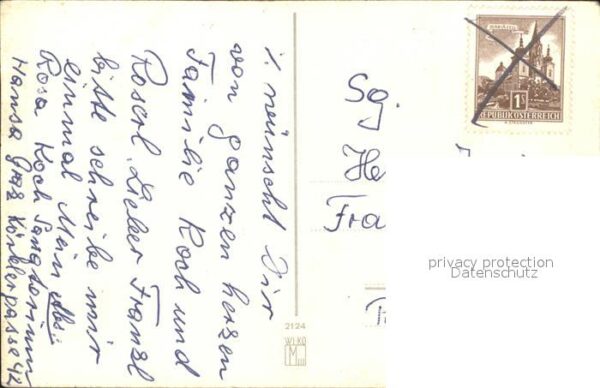 wünscht Dir
von ganzen herzen
Familie Koch und
Roserl. Lieber Franzl
bitte schreibe mir
einmal Mein Abs:
Rosa Koch Sanatorium
Hansa Graz Körblergasse 42
Sg
Fra
MARIAZELL
1S
REPUBLIK ÖSTERREICH
2124
WLKO
privacy protection
Datenschutz